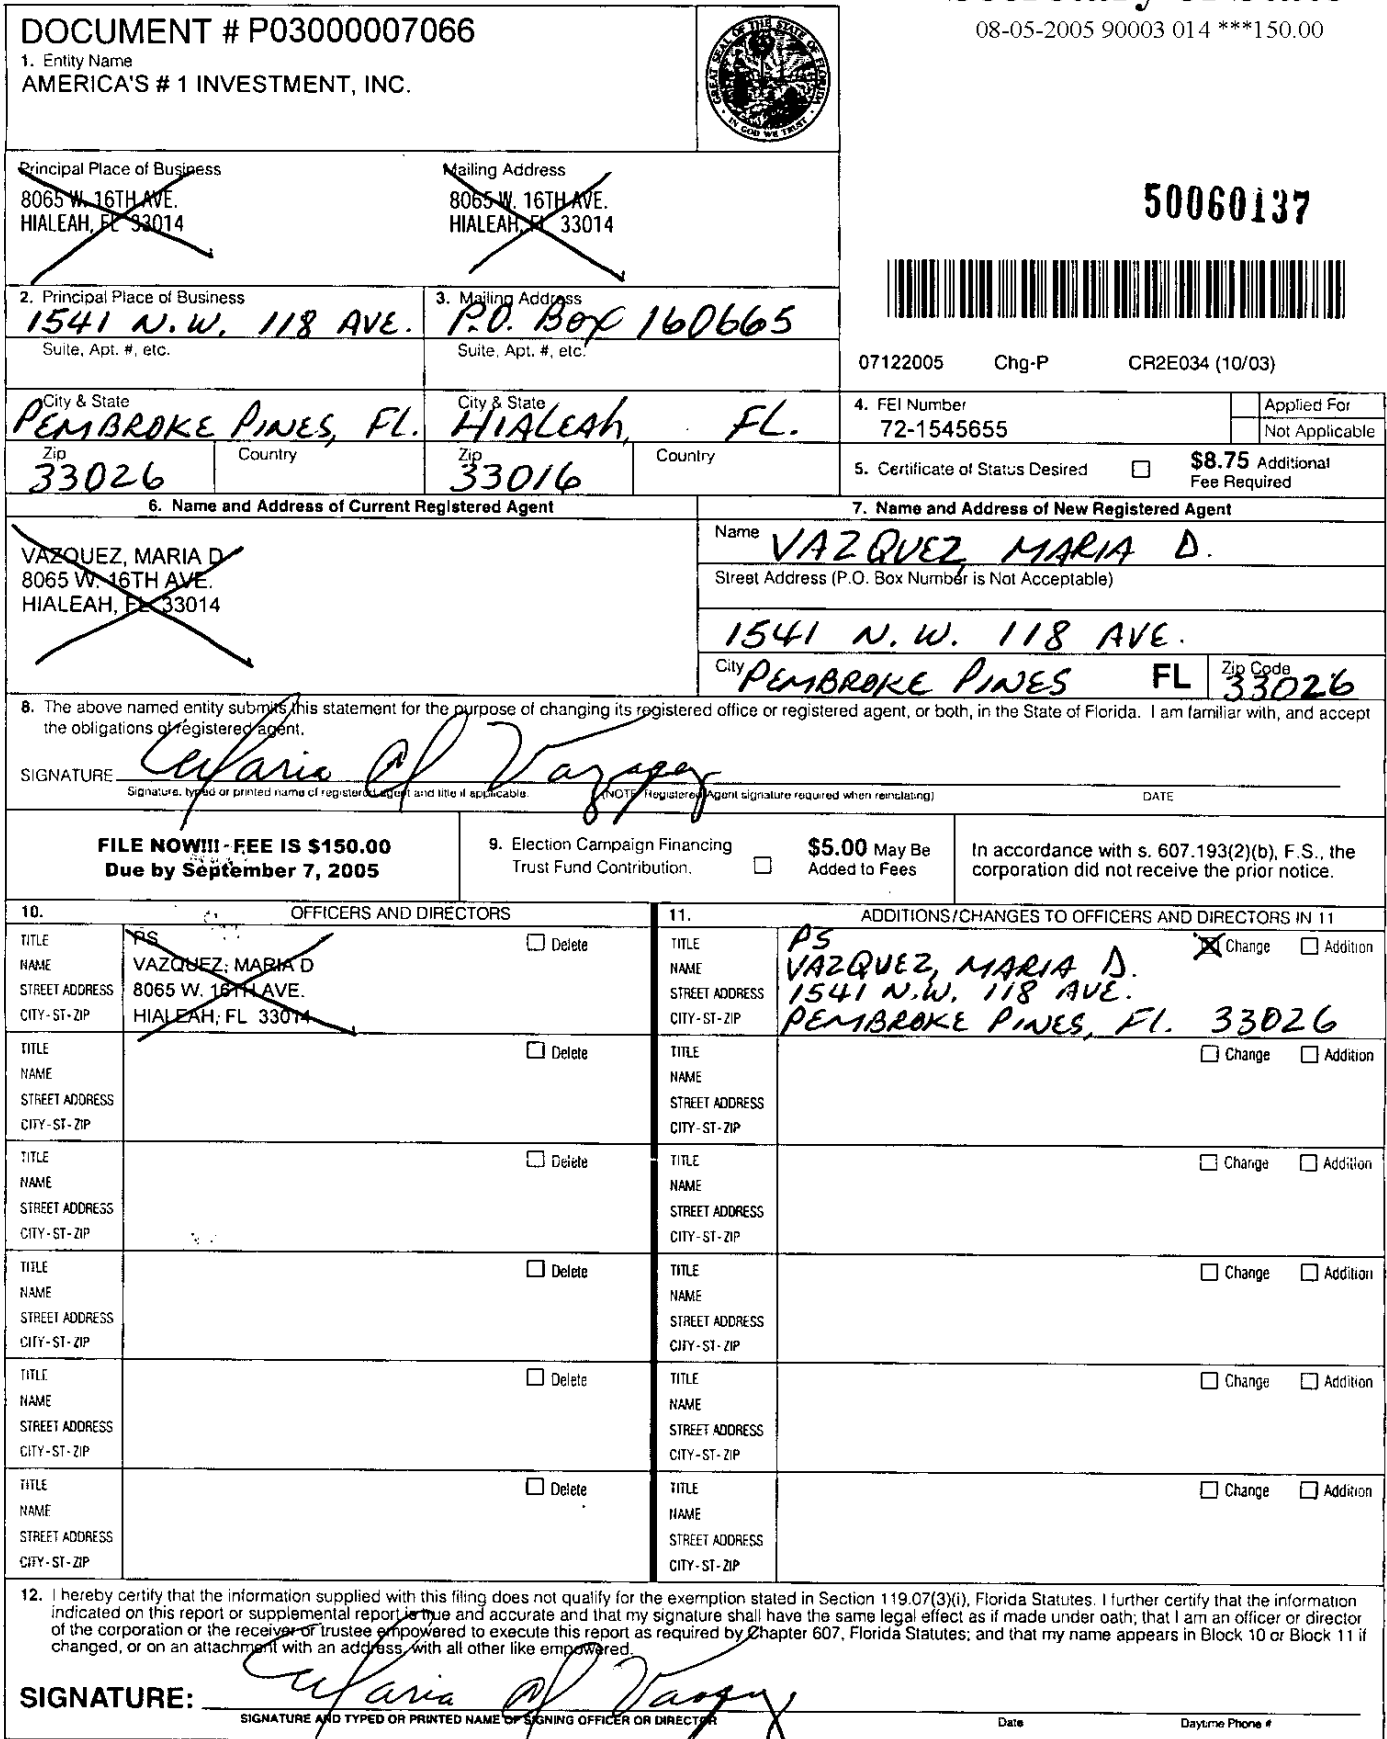 08-05-2005 90003 014 ***150.00
DOCUMENT # P03000007066
1. Entity Name
AMERICA'S # 1 INVESTMENT, INC.
GREAT SEAL OF THE STATE OF FLORIDA
IN GOD WE TRUST
Principal Place of Business
8065 W. 16TH AVE.
HIALEAH, FL 33014
Mailing Address
8065 W. 16TH AVE.
HIALEAH, FL 33014
50060137
2. Principal Place of Business
1541 N.W. 118 AVE.
Suite, Apt. #, etc.
3. Mailing Address
P.O. Box 160665
Suite, Apt. #, etc.
07122005 Chg-P CR2E034 (10/03)
City & State
PEMBROKE PINES, FL.
City & State
HIALEAH, FL.
Zip
33026
Country
Zip
33016
Country
4. FEI Number
72-1545655
Applied For
Not Applicable
5. Certificate of Status Desired
$8.75 Additional
Fee Required
6. Name and Address of Current Registered Agent
VAZQUEZ, MARIA D
8065 W. 16TH AVE.
HIALEAH, FL 33014
7. Name and Address of New Registered Agent
Name VAZQUEZ, MARIA D.
Street Address (P.O. Box Number is Not Acceptable)
1541 N.W. 118 AVE.
City PEMBROKE PINES FL Zip Code 33026
8. The above named entity submits this statement for the purpose of changing its registered office or registered agent, or both, in the State of Florida. I am familiar with, and accept
the obligations of registered agent.
SIGNATURE Maria D Vazquez
Signature, typed or printed name of registered agent and title if applicable. (NOTE Registered Agent signature required when reinstating) DATE
FILE NOW!!! - FEE IS $150.00
Due by September 7, 2005
9. Election Campaign Financing
Trust Fund Contribution.
$5.00 May Be
Added to Fees
In accordance with s. 607.193(2)(b), F.S., the
corporation did not receive the prior notice.
10. OFFICERS AND DIRECTORS
TITLE PS Delete
NAME VAZQUEZ, MARIA D
STREET ADDRESS 8065 W. 16TH AVE.
CITY-ST-ZIP HIALEAH, FL 33014
TITLE Delete
NAME
STREET ADDRESS
CITY-ST-ZIP
TITLE Delete
NAME
STREET ADDRESS
CITY-ST-ZIP
TITLE Delete
NAME
STREET ADDRESS
CITY-ST-ZIP
TITLE Delete
NAME
STREET ADDRESS
CITY-ST-ZIP
TITLE Delete
NAME
STREET ADDRESS
CITY-ST-ZIP
11. ADDITIONS/CHANGES TO OFFICERS AND DIRECTORS IN 11
TITLE PS Change Addition
NAME VAZQUEZ, MARIA D.
STREET ADDRESS 1541 N.W. 118 AVE.
CITY-ST-ZIP PEMBROKE PINES, Fl. 33026
TITLE Change Addition
NAME
STREET ADDRESS
CITY-ST-ZIP
TITLE Change Addition
NAME
STREET ADDRESS
CITY-ST-ZIP
TITLE Change Addition
NAME
STREET ADDRESS
CITY-ST-ZIP
TITLE Change Addition
NAME
STREET ADDRESS
CITY-ST-ZIP
TITLE Change Addition
NAME
STREET ADDRESS
CITY-ST-ZIP
12. I hereby certify that the information supplied with this filing does not qualify for the exemption stated in Section 119.07(3)(i), Florida Statutes. I further certify that the information
indicated on this report or supplemental report is true and accurate and that my signature shall have the same legal effect as if made under oath; that I am an officer or director
of the corporation or the receiver or trustee empowered to execute this report as required by Chapter 607, Florida Statutes; and that my name appears in Block 10 or Block 11 if
changed, or on an attachment with an address, with all other like empowered.
SIGNATURE: Maria D Vazquez
SIGNATURE AND TYPED OR PRINTED NAME OF SIGNING OFFICER OR DIRECTOR Date Daytime Phone #